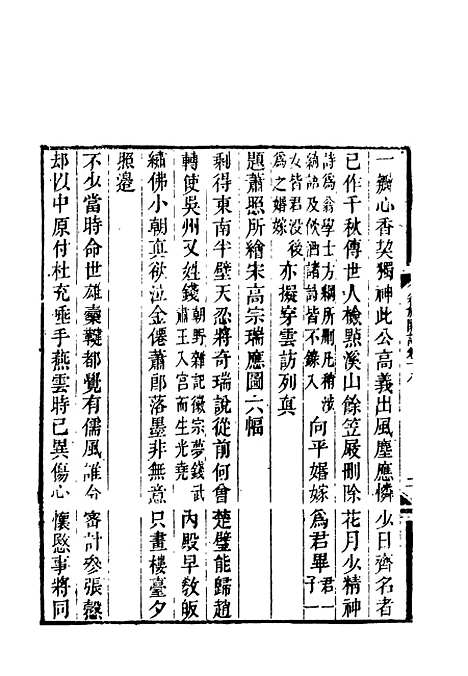 一瓣心香契獨神此公高義出風塵應憐少日齊名者
已作千秋傳世人檢點溪山餘笠屐刪除花月少精神
詩爲翁學士方綱所刪凡
綺語及飲酒諸詩皆不錄入
向平婚嫁爲君畢
君一子一
女皆君没後
爲之婚嫁
亦擬穿雲訪列真
題蕭照所繪宋高宗瑞應圖六幅
剩得東南半壁天忍將奇瑞說從前何曾楚璧能歸趙
轉使吳州又姓錢
朝野雜記徽宗夢錢武
肅王入宮而生光堯
內殿早敎皈
繡佛小朝真欲泣金僊蕭郎落墨非無意只畫樓臺夕
照邊
不少當時命世雄櫜鞬都覺有儒風誰令審計參張慤
却以中原付杜充垂手燕雲時已異傷心懷愍事將同